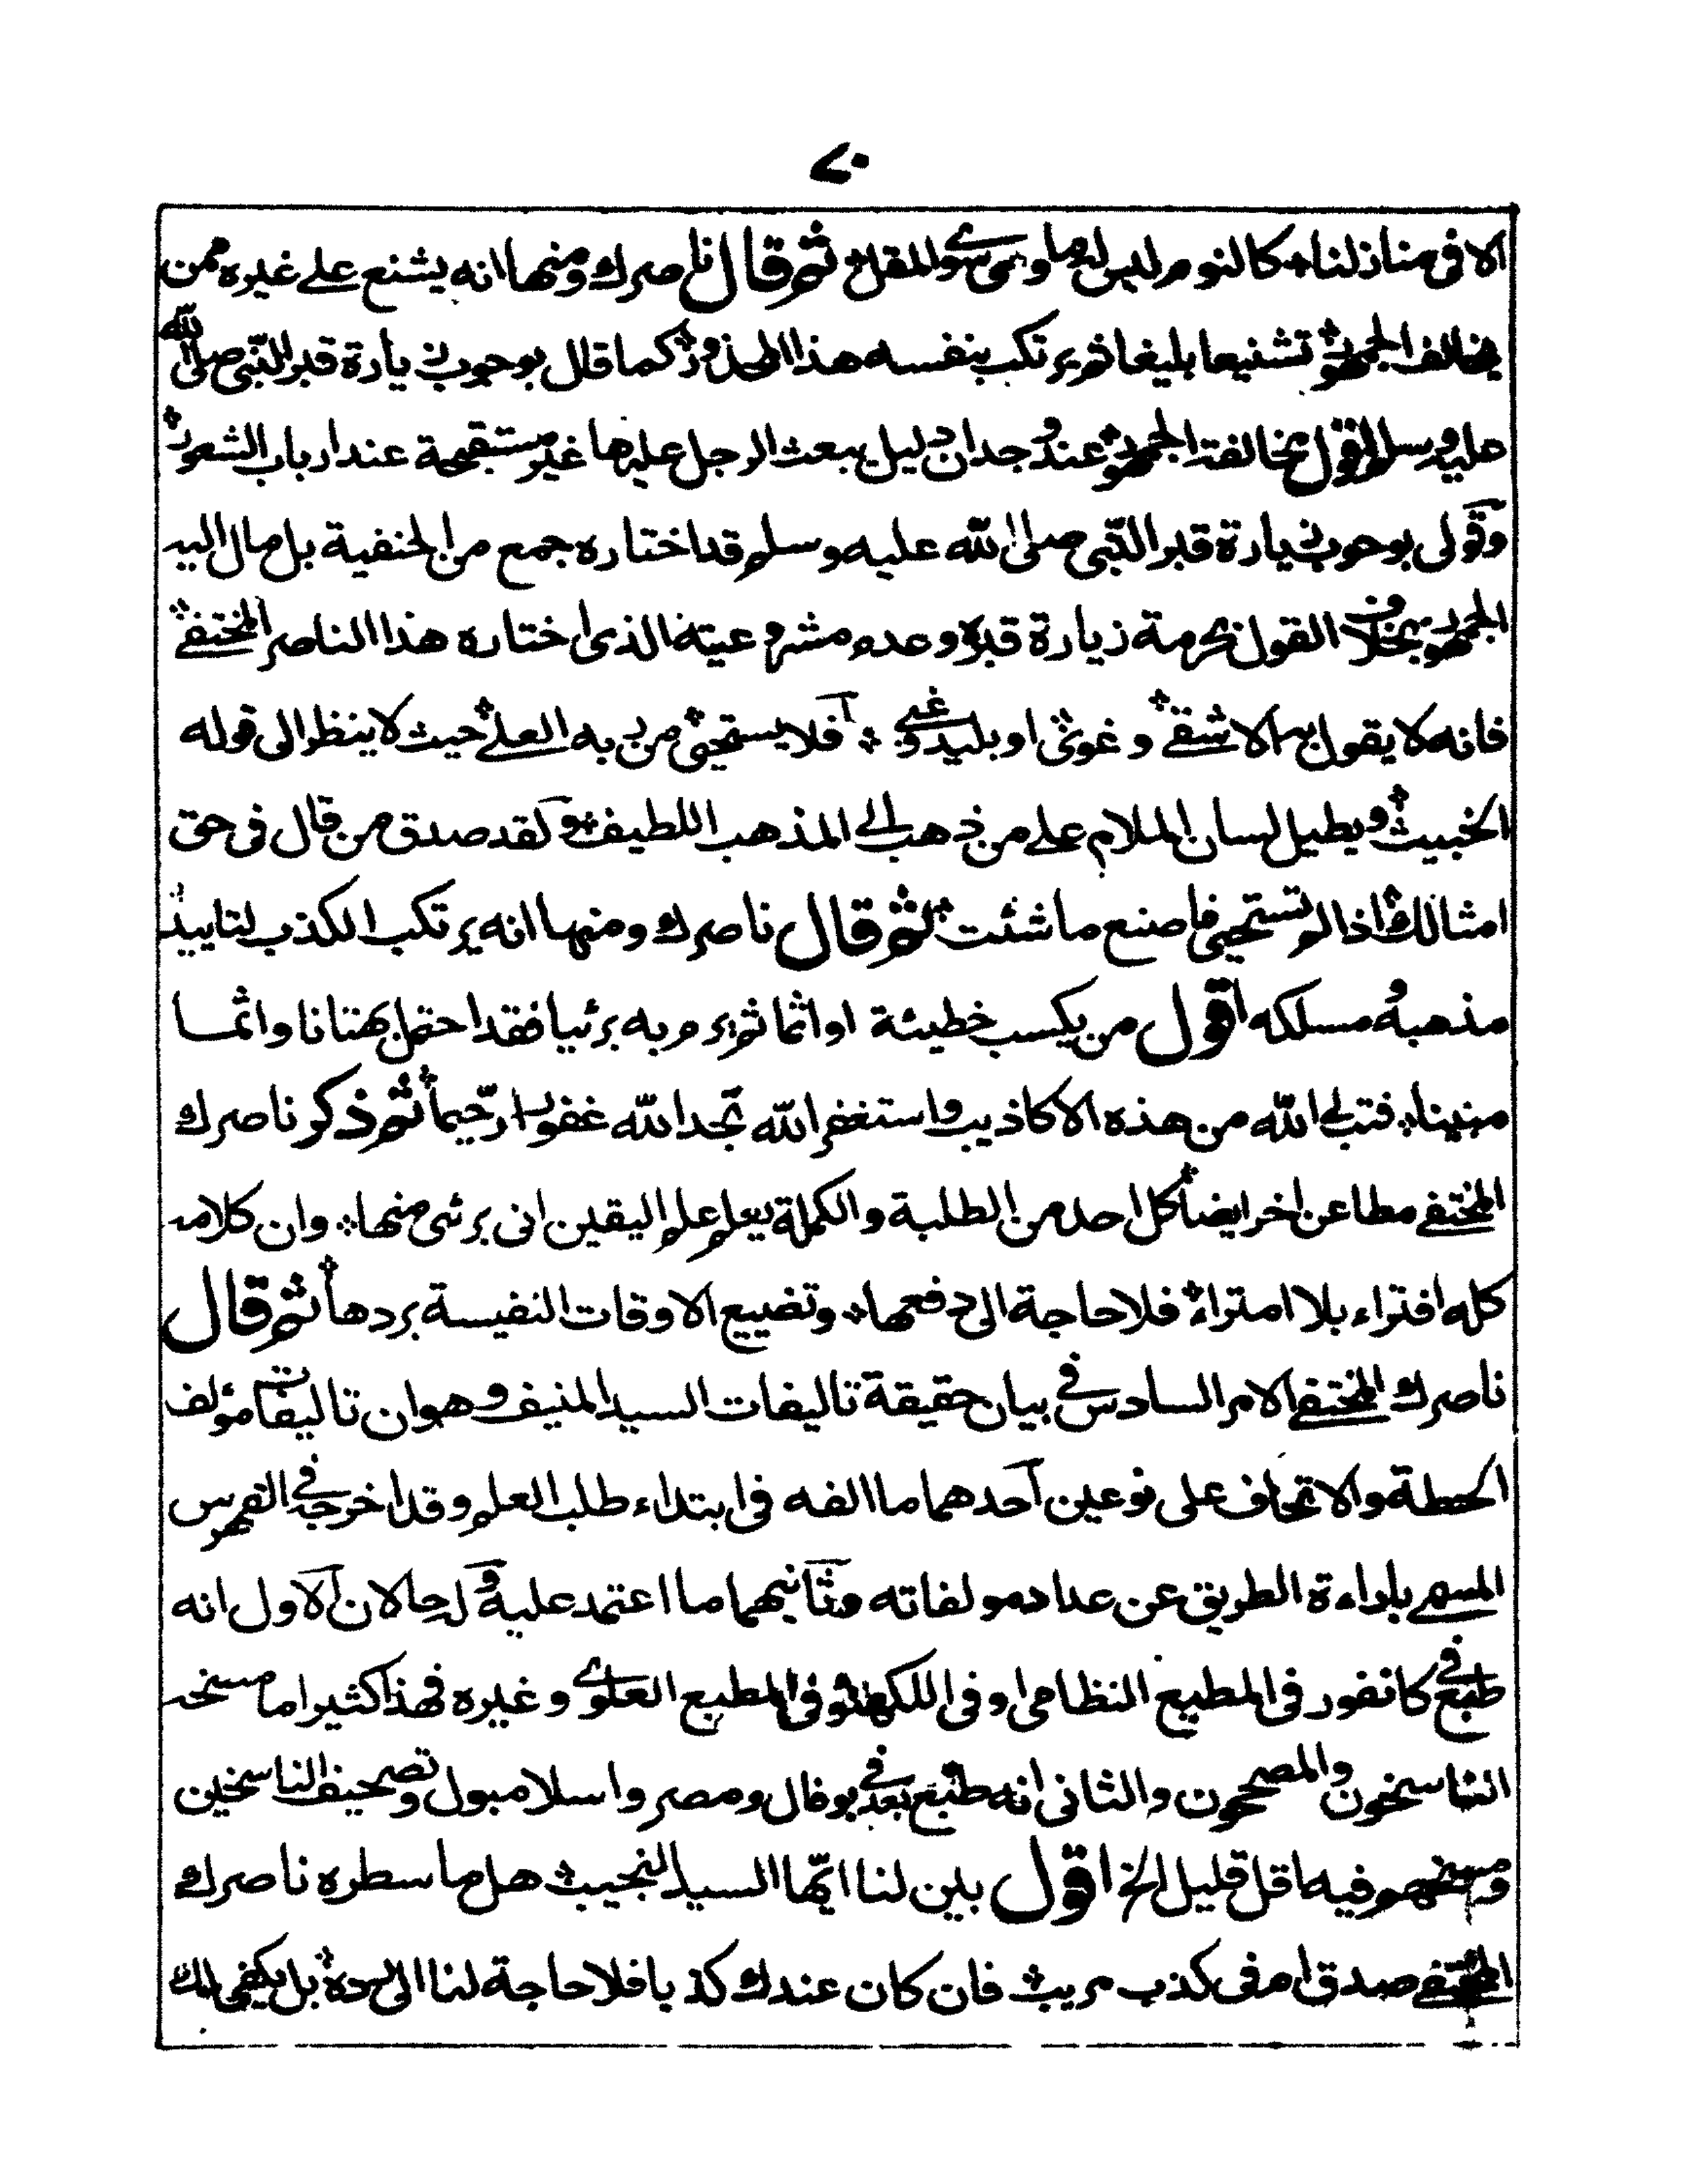 ٧٠
الا فى منازلنا٭ كالنوم ليس له ماوى سوى المقل٭ ثم قال ناصرك ومنها انه يشنع على غيره ممن
يخالف الجمهور٭ تشنيعا بليغا ثم يرتكب بنفسه هذا المحذور٭ كما قال بوجوب زيارة قبر النبى صلى الله
عليه وسلم اقول مخالفة الجمهور٭ عند وجدان دليل يبعث الرجل عليها غير مستقبحة عند ارباب الشعور٭
وقولى بوجوب زيارة قبر النبى صلى الله عليه وسلم قد اختاره جمع من الحنفية بل مال اليه
الجمهور بخلاف القول بحرمة زيارة قبره وعدم مشروعيته الذى اختاره هذا الناصر المختفى٭
فانه لا يقول به الا شقى٭ وغوى٭ او بليد وغبى ٭ افلا يستحيى٭ من ربه العلى٭ حيث لا ينظر الى قوله
الخبيث٭ ويطيل لسان الملام على من ذهب الى المذهب اللطيف٭ ولقد صدق من قال فى حق
امثالك٭ اذا لم تستحيى فاصنع ما شئت٭ ثم قال ناصرك ومنها انه يرتكب الكذب لتاييد
مذهبه ومسلكه اقول من يكسب خطيئة او اثما ثم يرم به برئيا فقد احتمل بهتانا واثما
مبينا٭ فتب الى الله من هذه الاكاذيب واستغفر الله تجد الله غفورا رحيما٭ ثم ذكر ناصرك
المختفى مطاعن اخر ايضا٭ كل احد من الطلبة والكملة يعلم علم اليقين انى برئى منها٭ وان كلامه
كله افتراء بلا امتراء٭ فلا حاجة الى دفعها٭ وتضييع الاوقات النفيسة بردها٭ ثم قال
ناصرك المختفى الامر السادس فى بيان حقيقة تاليفات السيد المنيف وهو ان تاليفات مؤلف
الحطة والاتحاف على نوعين احدهما ما الفه فى ابتداء طلب العلم وقد اخرجه فى الفهرس
المسمى باراءة الطريق عن عداد مولفاته وثانيهما ما اعتمد عليه وله حالان الاول انه
طبع فى كانفور فى المطبع النظامى او فى اللكهنئو فى المطبع العلوى وغيره فهذا كثيرا ما مسخه
الناسخون والمصححون والثانى انه طبع بعد فى بوفال ومصر واسلامبول وتصحيف الناسخين
ومسخهم فيه اقل قليل الخ اقول بين لنا ايها السيد النجيب٭ هل ما سطره ناصرك
المختفى صدق ام فى كذب مريب٭ فان كان عندك كذبا فلا حاجة لنا الى رده٭ بل يكفى لك